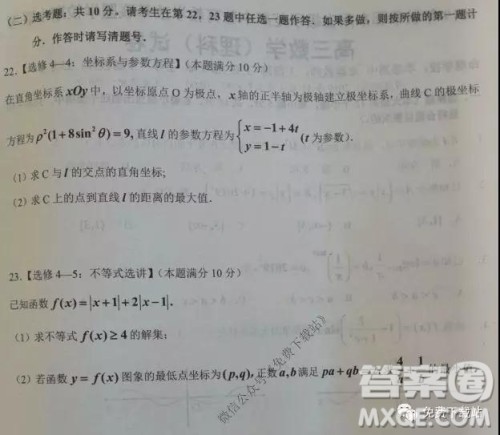 （二）选考题：共 10 分．请考生在第 22，23 题中任选一题作答．如果多做，则按所做的第一题计
分．作答时请写清题号．
22.【选修 4—4：坐标系与参数方程】（本题满分 10 分）
在直角坐标系 xOy 中，以坐标原点 O 为极点，x 轴的正半轴为极轴建立极坐标系，曲线 C 的极坐标
方程为 ρ²(1+8sin²θ)=9, 直线 l 的参数方程为 { x=-1+4t y=1-t (t 为参数).
（1）求 C 与 l 的交点的直角坐标;
（2）求 C 上的点到直线 l 的距离的最大值．
23.【选修 4—5：不等式选讲】（本题满分 10 分）
已知函数 f(x)=|x+1|+2|x-1|.
（1）求不等式 f(x)≥4 的解集;
（2）若函数 y=f(x) 图象的最低点坐标为 (p,q), 正数 a,b 满足 pa+qb 4 1
微信公众号《免费下载站》
答案圈
免费下载站
MXQE.COM